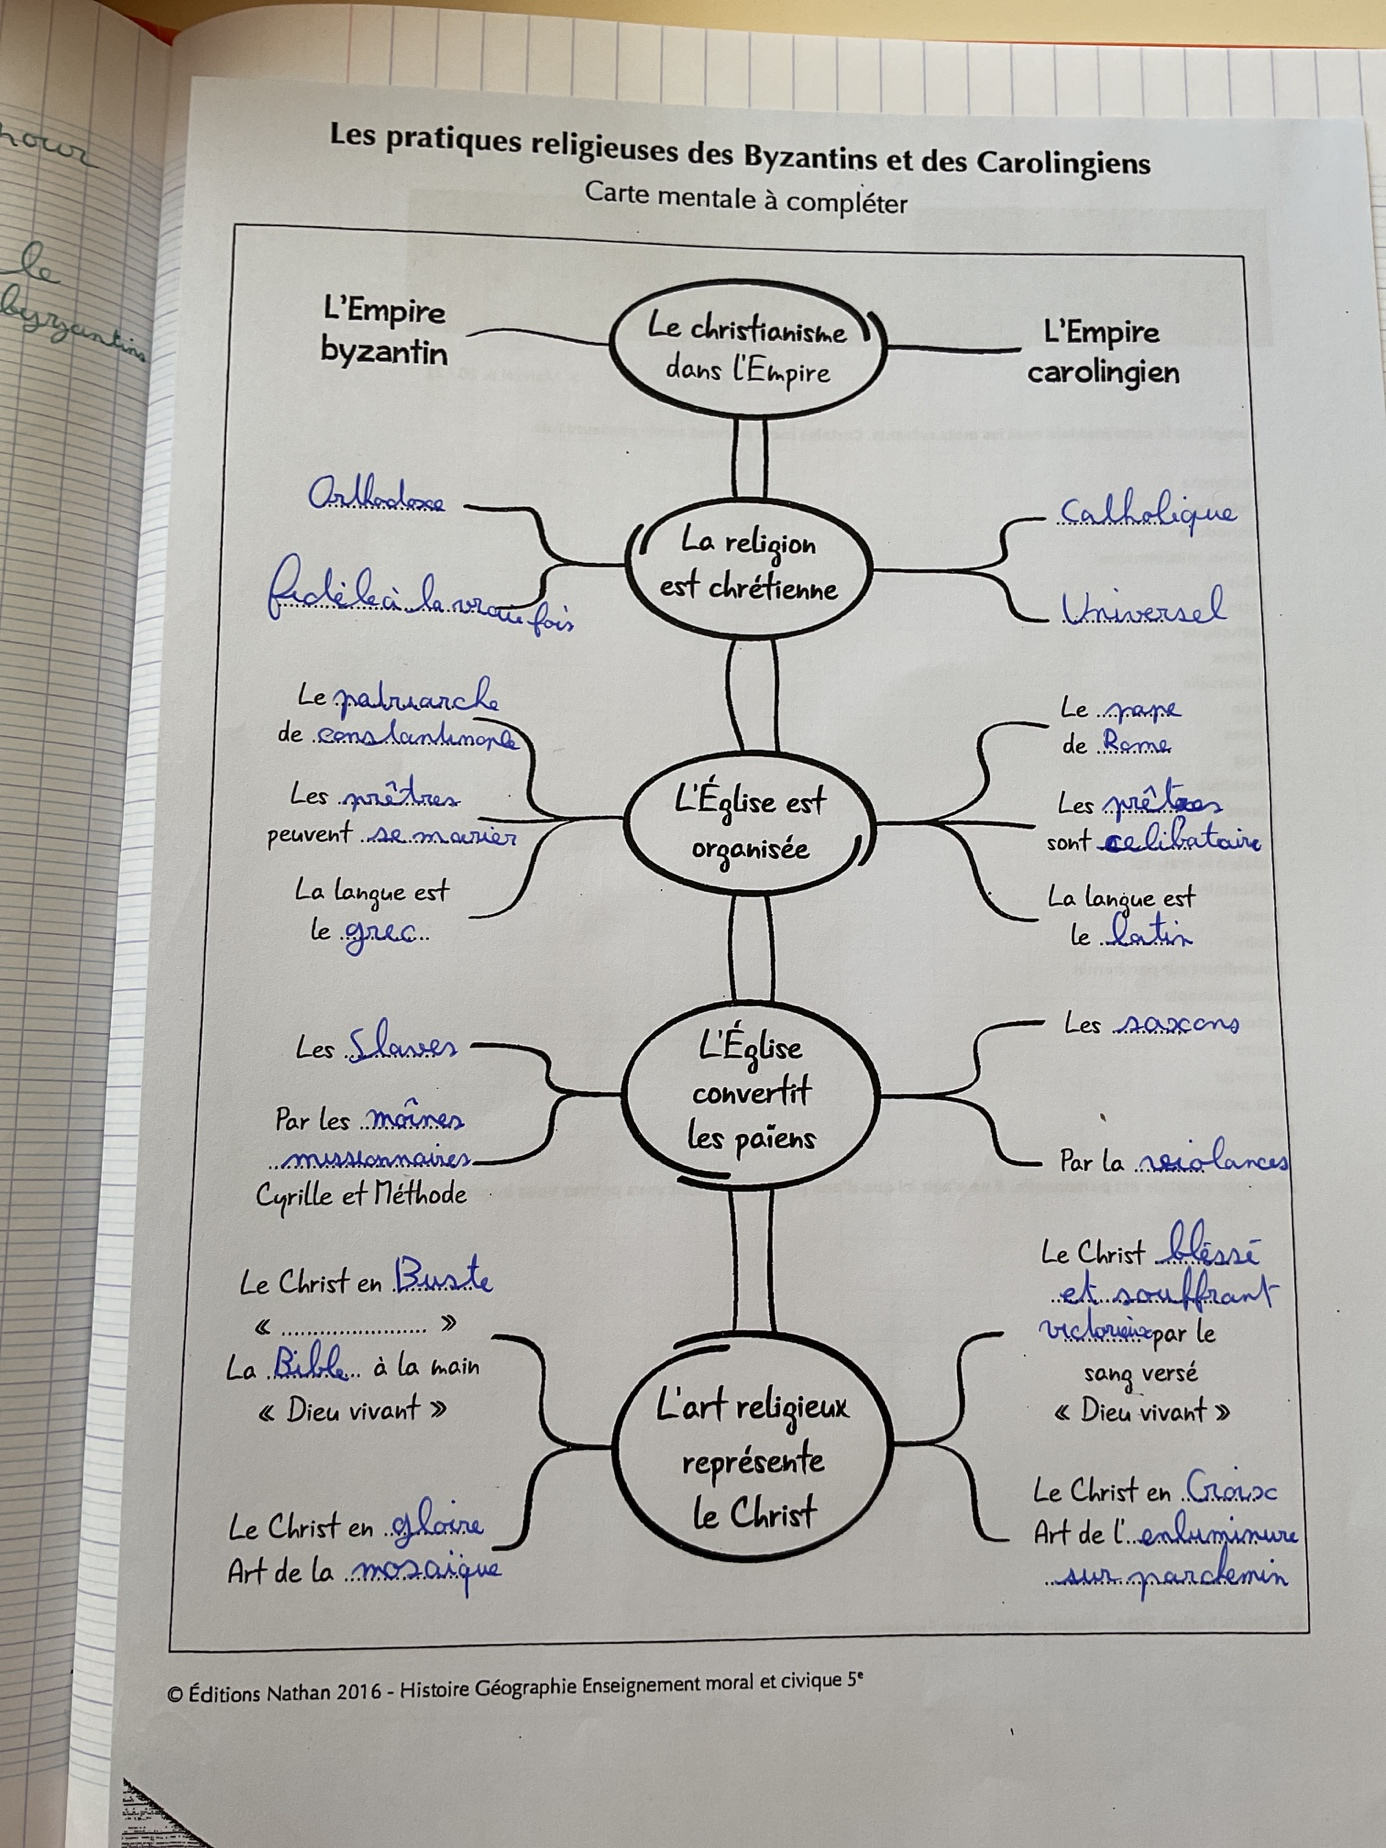 nour
le
byzantins
Les pratiques religieuses des Byzantins et des Carolingiens
Carte mentale à compléter
L'Empire
byzantin
Le christianisme
dans l'Empire
L'Empire
carolingien
Orthodoxe
fidèle à la vraie fois
La religion
est chrétienne
Catholique
Universel
Le patriarche
de constantinople
Les prêtres
peuvent se marier
La langue est
le grec
L'Église est
organisée
Le pape
de Rome
Les prêtres
sont celibataire
La langue est
le latin
Les Slaves
Par les moînes
missionnaires
Cyrille et Méthode
L'Église
convertit
les païens
Les saxons
Par la violances
Le Christ en Buste
« ........................ »
La Bible à la main
« Dieu vivant »
Le Christ en gloire
Art de la mosaique
L'art religieux
représente
le Christ
Le Christ bléssé
et souffrant
victorieix par le
sang versé
« Dieu vivant »
Le Christ en Croix
Art de l'enluminure
sur parchemin
© Éditions Nathan 2016 - Histoire Géographie Enseignement moral et civique 5e